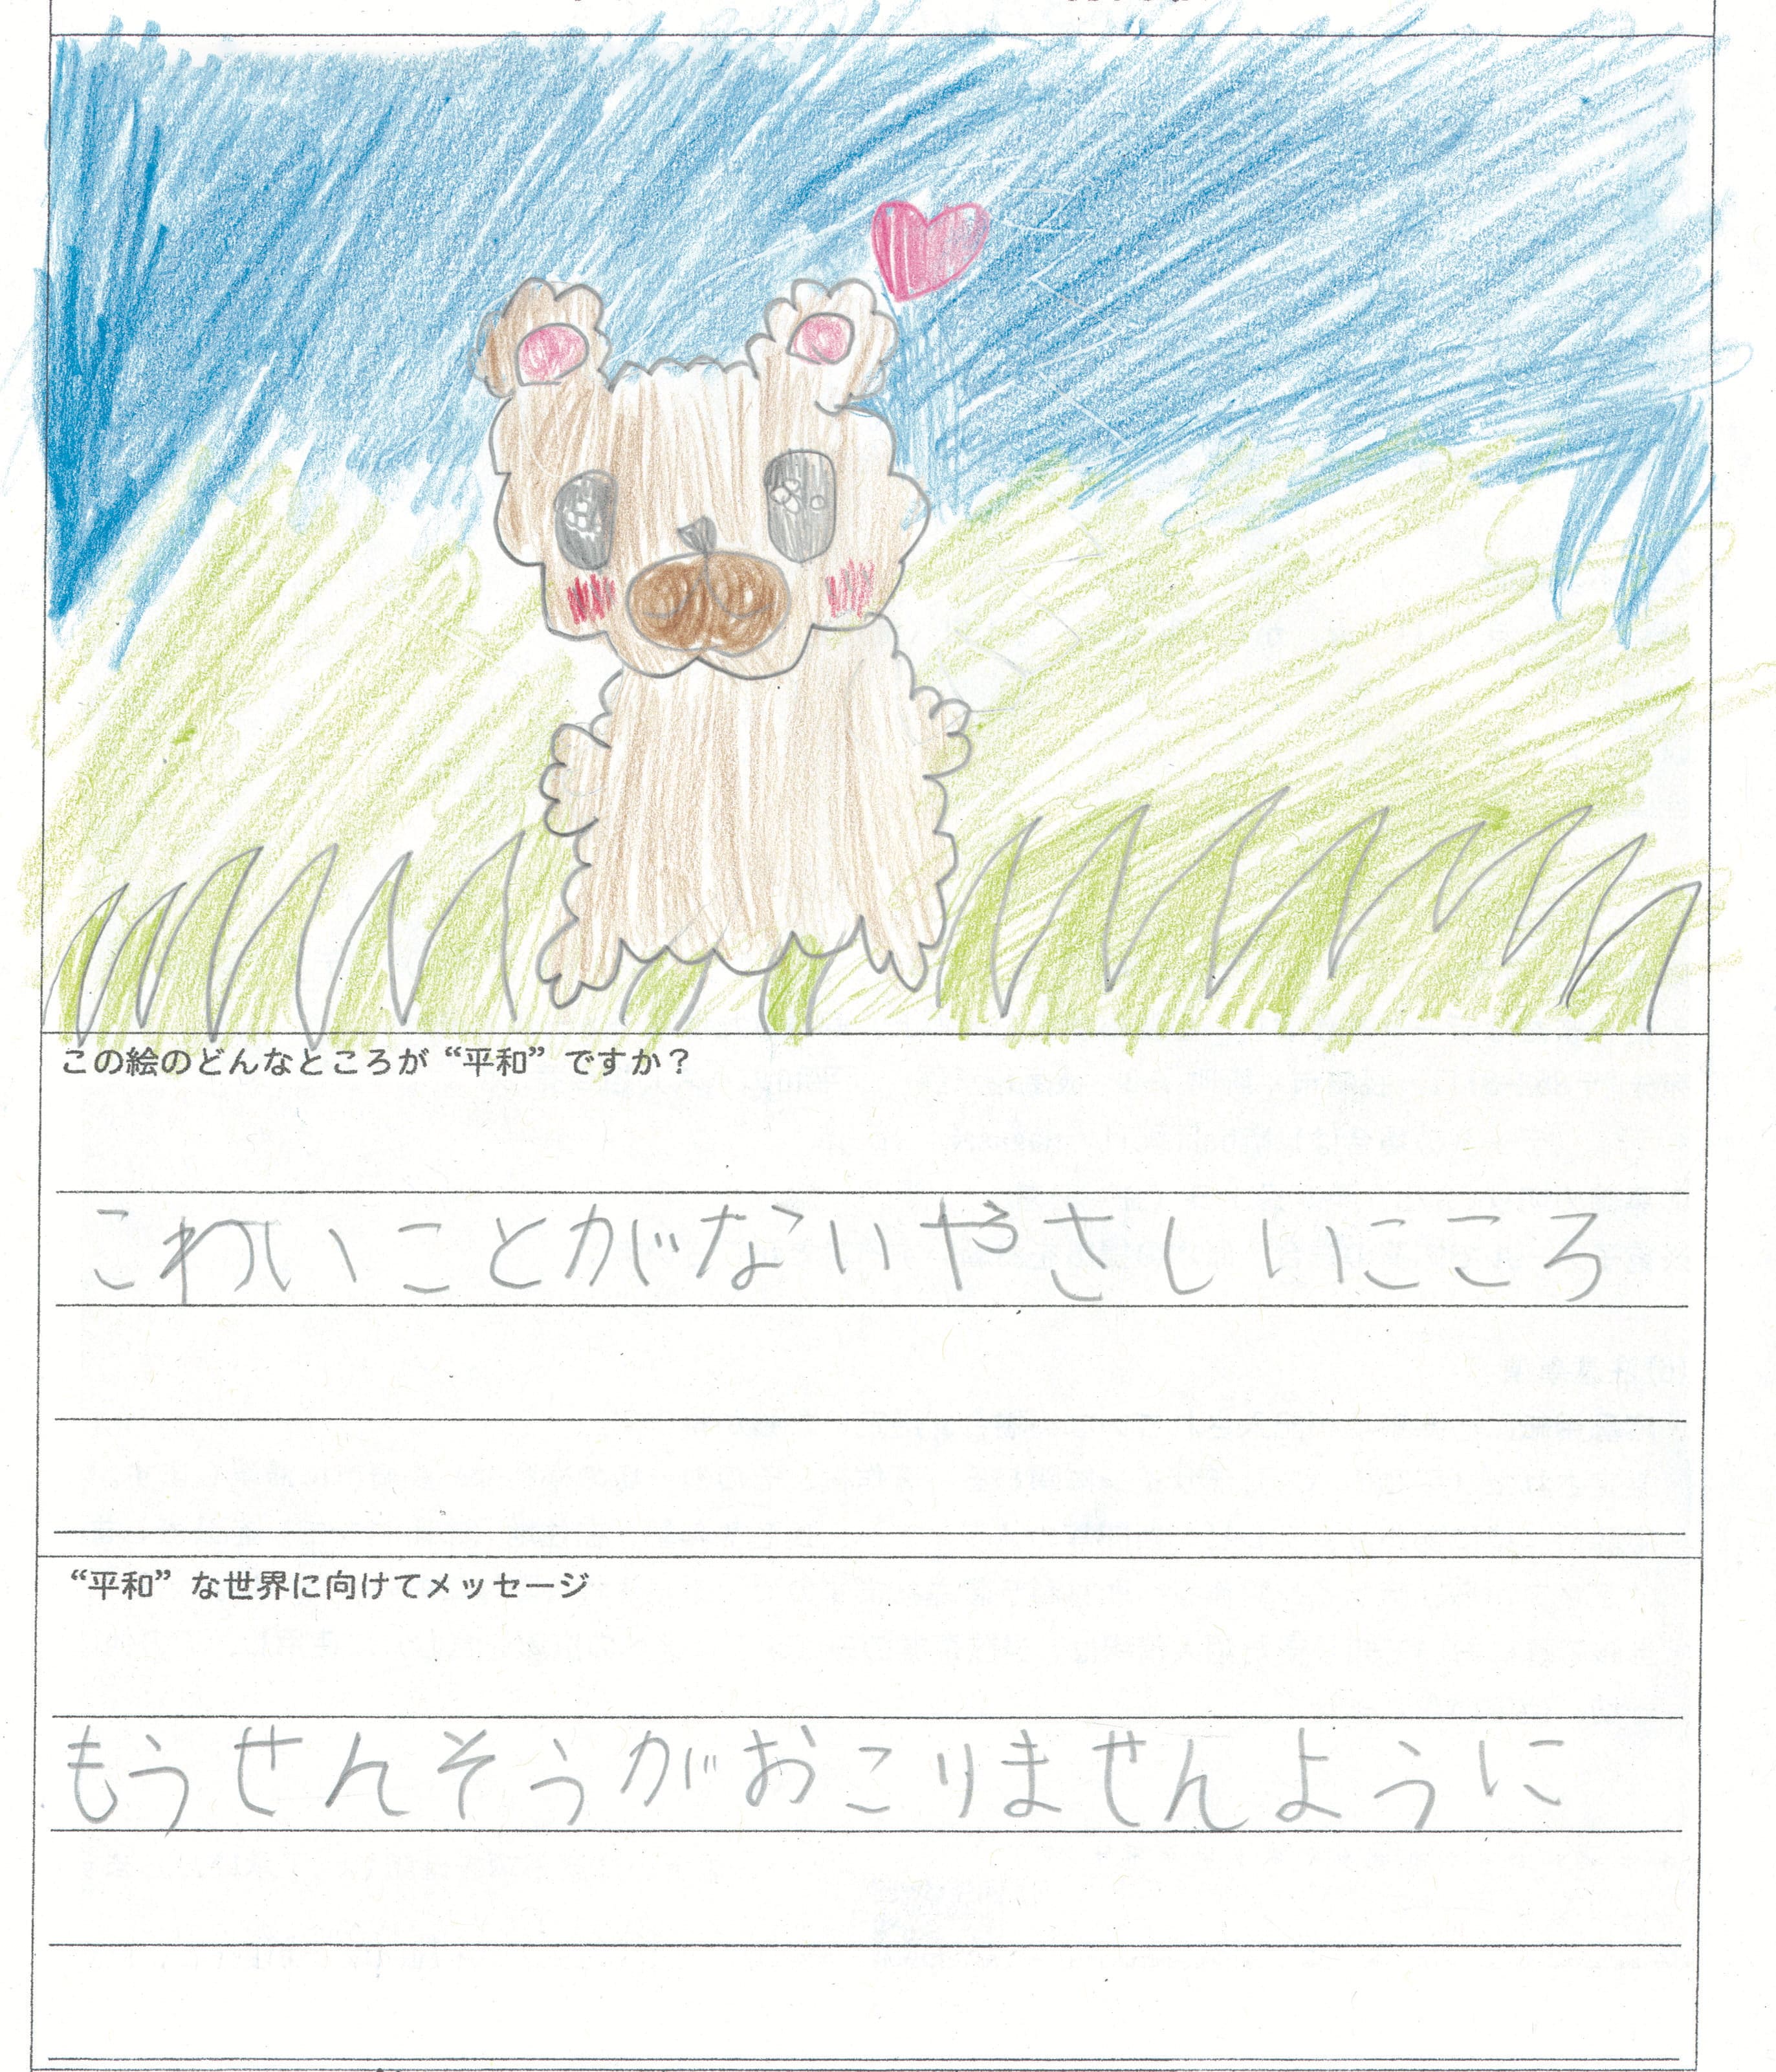 この絵のどんなところが“平和”ですか？
こわいことがないやさしいこころ
“平和”な世界に向けてメッセージ
もうせんそうがおこりませんように